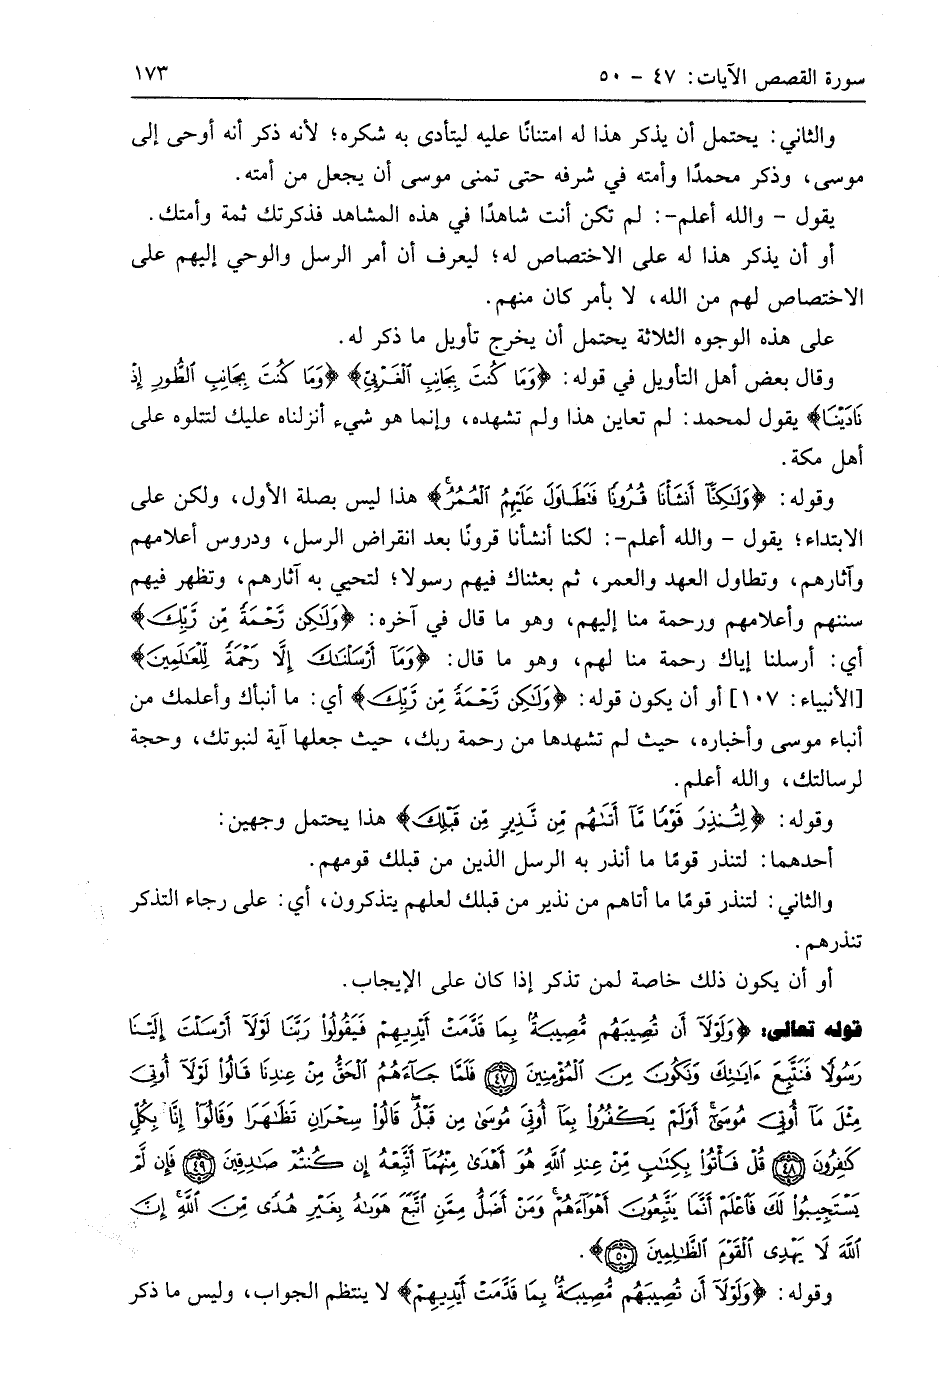 سورة القصص الآيات: ٤٧ - ٥٠ ١٧٣
والثاني: يحتمل أن يذكر هذا له امتنانًا عليه ليتأدى به شكره؛ لأنه ذكر أنه أوحى إلى
موسى، وذكر محمدًا وأمته في شرفه حتى تمنى موسى أن يجعل من أمته.
يقول - والله أعلم-: لم تكن أنت شاهدًا في هذه المشاهد فذكرتك ثمة وأمتك.
أو أن يذكر هذا له على الاختصاص له؛ ليعرف أن أمر الرسل والوحي إليهم على
الاختصاص لهم من الله، لا بأمر كان منهم.
على هذه الوجوه الثلاثة يحتمل أن يخرج تأويل ما ذكر له.
وقال بعض أهل التأويل في قوله: ﴿وَمَا كُنتَ بِجَانِبِ ٱلْغَرْبِيِّ﴾ ﴿وَمَا كُنتَ بِجَانِبِ ٱلطُّورِ إِذْ
نَادَيْنَا﴾ يقول لمحمد: لم تعاين هذا ولم تشهده، وإنما هو شيء أنزلناه عليك لتتلوه على
أهل مكة.
وقوله: ﴿وَلَٰكِنَّآ أَنشَأْنَا قُرُونًا فَتَطَاوَلَ عَلَيْهِمُ ٱلْعُمُرُۚ﴾ هذا ليس بصلة الأول، ولكن على
الابتداء؛ يقول - والله أعلم-: لكنا أنشأنا قرونًا بعد انقراض الرسل، ودروس أعلامهم
وآثارهم، وتطاول العهد والعمر، ثم بعثناك فيهم رسولا؛ لتحيي به آثارهم، وتظهر فيهم
سننهم وأعلامهم ورحمة منا إليهم، وهو ما قال في آخره: ﴿وَلَٰكِن رَّحْمَةً مِّن رَّبِّكَ﴾
أي: أرسلنا إياك رحمة منا لهم، وهو ما قال: ﴿وَمَآ أَرْسَلْنَٰكَ إِلَّا رَحْمَةً لِّلْعَٰلَمِينَ﴾
[الأنبياء: ١٠٧] أو أن يكون قوله: ﴿وَلَٰكِن رَّحْمَةً مِّن رَّبِّكَ﴾ أي: ما أنبأك وأعلمك من
أنباء موسى وأخباره، حيث لم تشهدها من رحمة ربك، حيث جعلها آية لنبوتك، وحجة
لرسالتك، والله أعلم.
وقوله: ﴿لِتُنذِرَ قَوْمًا مَّآ أَتَىٰهُم مِّن نَّذِيرٍ مِّن قَبْلِكَ﴾ هذا يحتمل وجهين:
أحدهما: لتنذر قومًا ما أنذر به الرسل الذين من قبلك قومهم.
والثاني: لتنذر قومًا ما أتاهم من نذير من قبلك لعلهم يتذكرون، أي: على رجاء التذكر
تنذرهم.
أو أن يكون ذلك خاصة لمن تذكر إذا كان على الإيجاب.
قوله تعالى: ﴿وَلَوْلَآ أَن تُصِيبَهُم مُّصِيبَةٌۢ بِمَا قَدَّمَتْ أَيْدِيهِمْ فَيَقُولُوا۟ رَبَّنَا لَوْلَآ أَرْسَلْتَ إِلَيْنَا
رَسُولًا فَنَتَّبِعَ ءَايَٰتِكَ وَنَكُونَ مِنَ ٱلْمُؤْمِنِينَ ٤٧ فَلَمَّا جَآءَهُمُ ٱلْحَقُّ مِنْ عِندِنَا قَالُوا۟ لَوْلَآ أُوتِىَ
مِثْلَ مَآ أُوتِىَ مُوسَىٰٓۚ أَوَلَمْ يَكْفُرُوا۟ بِمَآ أُوتِىَ مُوسَىٰ مِن قَبْلُۖ قَالُوا۟ سِحْرَانِ تَظَٰهَرَا وَقَالُوٓا۟ إِنَّا بِكُلٍّ
كَٰفِرُونَ ٤٨ قُلْ فَأْتُوا۟ بِكِتَٰبٍ مِّنْ عِندِ ٱللَّهِ هُوَ أَهْدَىٰ مِنْهُمَآ أَتَّبِعْهُ إِن كُنتُمْ صَٰدِقِينَ ٤٩ فَإِن لَّمْ
يَسْتَجِيبُوا۟ لَكَ فَٱعْلَمْ أَنَّمَا يَتَّبِعُونَ أَهْوَآءَهُمْۚ وَمَنْ أَضَلُّ مِمَّنِ ٱتَّبَعَ هَوَىٰهُ بِغَيْرِ هُدًى مِّنَ ٱللَّهِۚ إِنَّ
ٱللَّهَ لَا يَهْدِى ٱلْقَوْمَ ٱلظَّٰلِمِينَ ٥٠﴾.
وقوله: ﴿وَلَوْلَآ أَن تُصِيبَهُم مُّصِيبَةٌۢ بِمَا قَدَّمَتْ أَيْدِيهِمْ﴾ لا ينتظم الجواب، وليس ما ذكر